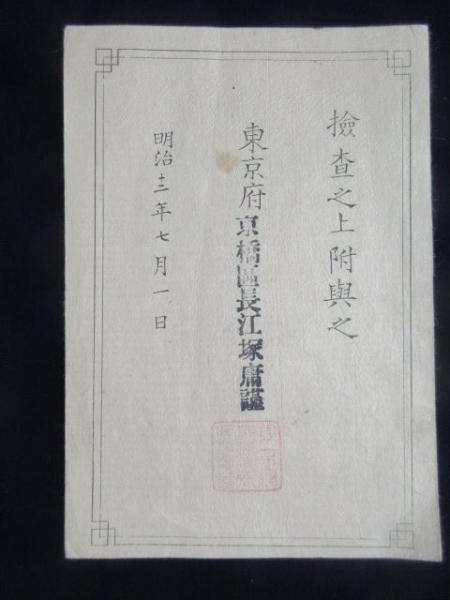 撿查之上附與之
東京府京橋區長江塚庸謹
明治十二年七月一日